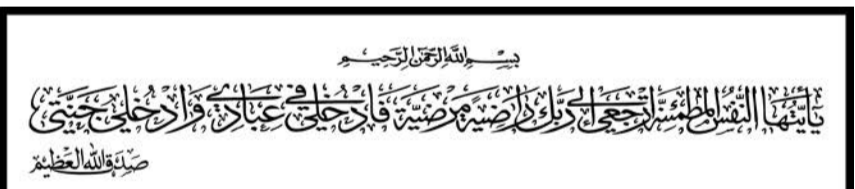 بِسْمِ اللهِ الرَّحْمٰنِ الرَّحِيمِ
يَا أَيَّتُهَا النَّفْسُ الْمُطْمَئِنَّةُ ارْجِعِي إِلَى رَبِّكِ رَاضِيَةً مَرْضِيَّةً فَادْخُلِي فِي عِبَادِي وَادْخُلِي جَنَّتِي
صَدَقَ اللهُ الْعَظِيمُ